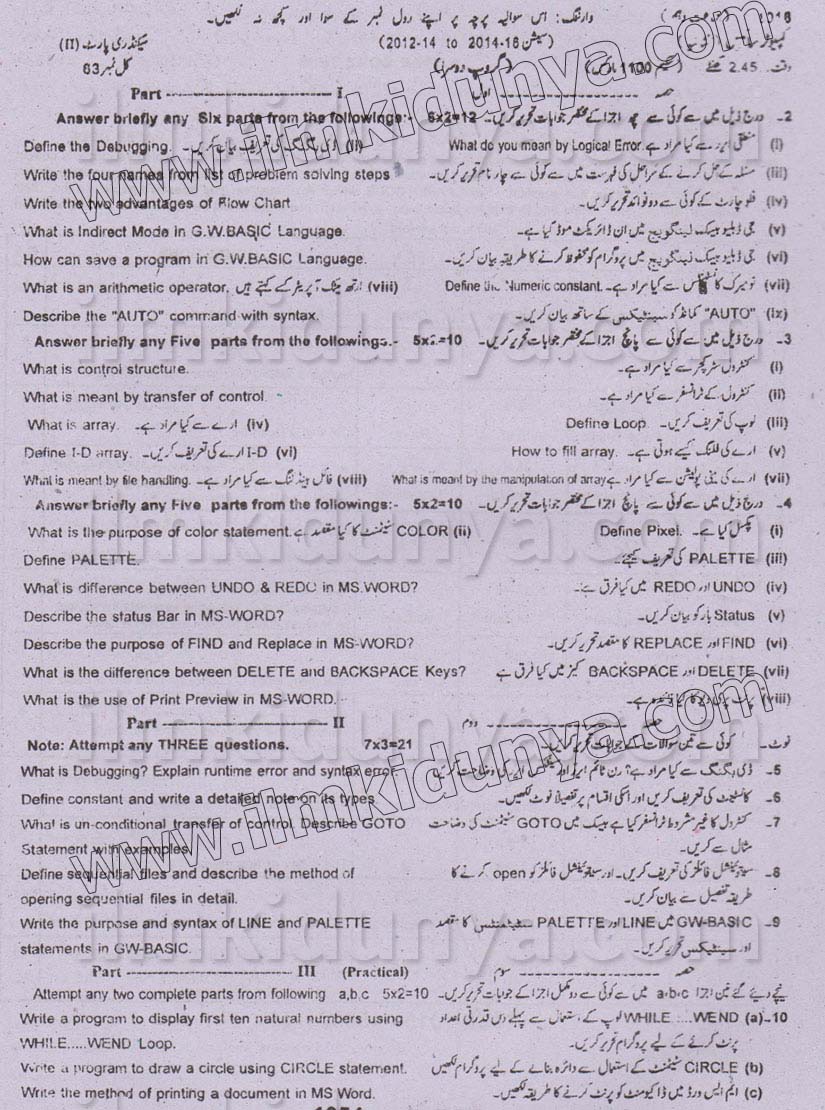 2016
وارننگ: اس سوالیہ پرچہ پر اپنے رول نمبر کے سوا اور کچھ نہ لکھیں۔
سیکنڈری پارٹ (II) (سیشن 2012-14 to 2014-16) کمپیوٹر
کل نمبر 63 (گروپ دوسرا) 1100 وقت 2.45 گھنٹے
Part ---------- I حصہ ---------- اول
Answer briefly any Six parts from the followings:- 6x2=12 درج ذیل میں سے کوئی سے چھ اجزا کے مختصر جوابات تحریر کریں۔ -2
Define the Debugging. ڈی بگنگ کی تعریف بیان کریں۔ (ii) What do you mean by Logical Error. منطقی ایرر سے کیا مراد ہے (i)
Write the four names from list of problem solving steps مسئلہ کے حل کرنے کے مراحل کی فہرست میں سے کوئی سے چار نام تحریر کریں۔ (iii)
Write the two advantages of Flow Chart فلو چارٹ کے کوئی سے دو فوائد تحریر کریں۔ (iv)
What is Indirect Mode in G.W.BASIC Language. جی ڈبلیو بیسک لینگویج میں ان ڈائریکٹ موڈ کیا ہے۔ (v)
How can save a program in G.W.BASIC Language. جی ڈبلیو بیسک لینگویج میں پروگرام کو محفوظ کرنے کا طریقہ بیان کریں۔ (vi)
What is an arithmetic operator. ارتھ میٹک آپریٹر کسے کہتے ہیں (viii) Define the Numeric constant. نومیرک کانسٹنٹس سے کیا مراد ہے۔ (vii)
Describe the "AUTO" command with syntax. "AUTO" کمانڈ کو سینٹیکس کے ساتھ بیان کریں۔ (ix)
Answer briefly any Five parts from the followings.- 5x2=10 درج ذیل میں سے کوئی سے پانچ اجزا کے مختصر جوابات تحریر کریں۔ -3
What is control structure. کنٹرول سٹرکچر سے کیا مراد ہے۔ (i)
What is meant by transfer of control. کنٹرول کے ٹرانسفر سے کیا مراد ہے۔ (ii)
What is array. ارے سے کیا مراد ہے۔ (iv) Define Loop. لوپ کی تعریف کریں۔ (iii)
Define I-D array. I-D ارے کی تعریف کریں۔ (vi) How to fill array. ارے کی فلنگ کیسے ہوتی ہے۔ (v)
What is meant by file handling. فائل ہینڈلنگ سے کیا مراد ہے۔ (viii) What is meant by the manipulation of array ارے کی مینی پولیشن سے کیا مراد ہے (vii)
Answer briefly any Five parts from the followings:- 5x2=10 درج ذیل میں سے کوئی سے پانچ اجزا کے مختصر جوابات تحریر کریں۔ -4
What is the purpose of color statement. COLOR سٹیٹمنٹ کا کیا مقصد ہے (ii) Define Pixel. پکسل کیا ہے۔ (i)
Define PALETTE. PALETTE کی تعریف کیجئے۔ (iii)
What is difference between UNDO & REDO in MS.WORD? UNDO اور REDO میں کیا فرق ہے۔ (iv)
Describe the status Bar in MS-WORD? Status بار کو بیان کریں۔ (v)
Describe the purpose of FIND and Replace in MS-WORD? FIND اور REPLACE کا مقصد تحریر کریں۔ (vi)
What is the difference between DELETE and BACKSPACE Keys? DELETE اور BACKSPACE کیز میں کیا فرق ہے (vii)
What is the use of Print Preview in MS-WORD. پرنٹ پری ویو کا کیا فائدہ ہے۔ (viii)
Part ---------- II حصہ ---------- دوم
Note: Attempt any THREE questions. 7x3=21 کوئی سے تین سوالات کے جوابات تحریر کریں۔ نوٹ۔
What is Debugging? Explain runtime error and syntax error. ڈی بگنگ سے کیا مراد ہے؟ رن ٹائم ایرر اور سنٹیکس ایرر کی وضاحت کریں -5
Define constant and write a detailed note on its types کانسٹنٹ کی تعریف کریں اور اسکی اقسام پر تفصیلاً نوٹ لکھیں۔ -6
What is un-conditional transfer of control. Describe GOTO کنٹرول کا غیر مشروط ٹرانسفر کیا ہے بیسک میں GOTO سٹیٹمنٹ کی وضاحت -7
Statement with examples. مثال سے کریں۔
Define sequential files and describe the method of سیکوینشل فائلز کی تعریف کریں۔ اور سیکوینشل فائلز کو open کرنے کا -8
opening sequential files in detail. طریقہ تفصیل سے بیان کریں۔
Write the purpose and syntax of LINE and PALETTE GW-BASIC میں LINE اور PALETTE سٹیٹمنٹس کا مقصد -9
statements in GW-BASIC. اور سینٹیکس تحریر کریں۔
Part ---------- III (Practical) حصہ ---------- سوم
Attempt any two complete parts from following a,b,c 5x2=10 نیچے دیئے گئے تین اجزا a,b,c میں سے کوئی سے دو مکمل اجزا کے جوابات تحریر کریں۔
Write a program to display first ten natural numbers using WHILE.....WEND لوپ کے استعمال سے پہلے دس قدرتی اعداد (a) -10
WHILE.....WEND Loop. پرنٹ کرنے کے لیے پروگرام تحریر کریں۔
Write a program to draw a circle using CIRCLE statement. CIRCLE سٹیٹمنٹ کے استعمال سے دائرہ بنانے کے لیے پروگرام لکھیں (b)
Write the method of printing a document in MS Word. ایم ایس ورڈ میں ڈاکیومنٹ کو پرنٹ کرنے کا طریقہ لکھیں۔ (c)
www.ilmkidunya.com
www.ilmkidunya.com